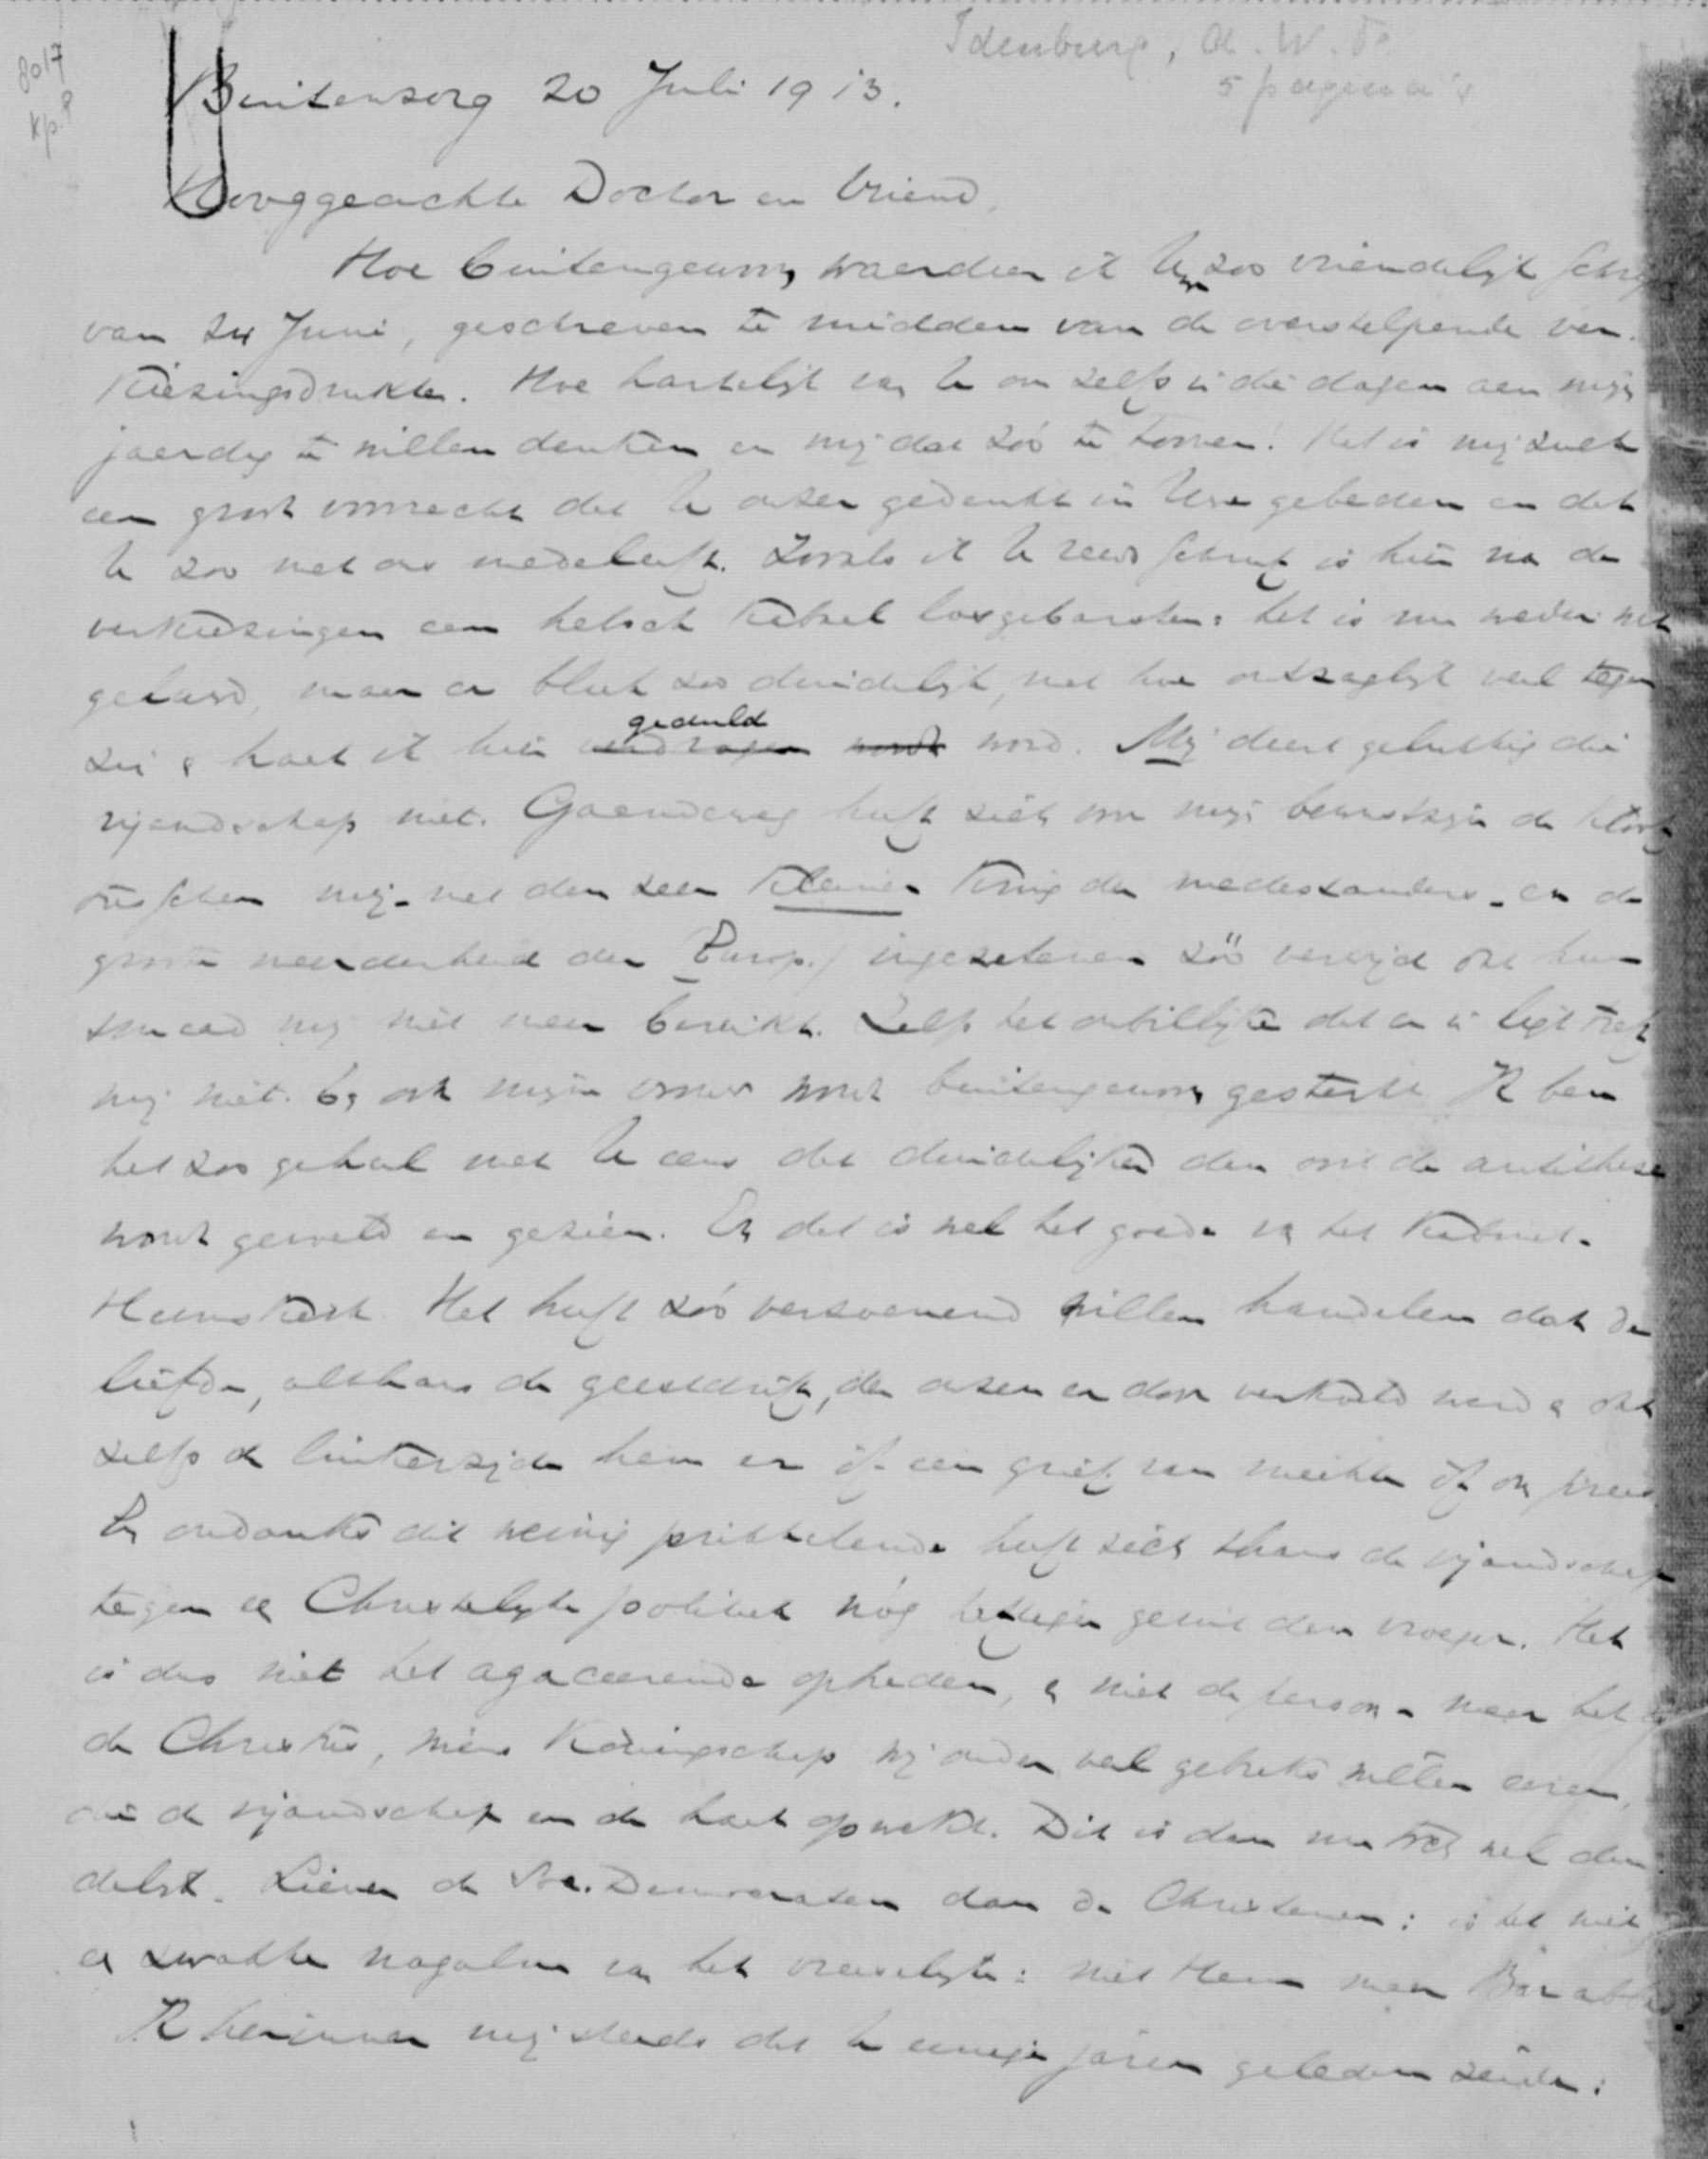 Idenburg, A. W. F.
5 pagina's
8017
kp. P
Buitenzorg 20 Juli 1913.
Hooggeachte Doctor en Vriend,
Hoe buitengewoon waardeer ik Uw zoo vriendelijk
van 24 Juni, geschreven te midden van de overstelpende ver-
kiezingsdrukte. Hoe hartelijk van U om zelfs in die dagen aan mijn
jaardag te willen denken en mij dat zóó te toonen! Het is mij zulk
een groot voorrecht dat U onzer gedenkt in Uwe gebeden en dat
U zoo met ons medeleeft. Zooals ik U reeds schreef is hier na de
verkiezingen een helsch kabaal losgebarsten: het is nu weder wat
geluwd, maar er bleek zoo duidelijk, met hoe ontzaglijk veel tegen
zin & haat ik hier geduld word. Mij deert gelukkig die
vijandschap niet. Gaandeweg heeft zich voor mijn bewustzijn de kloof
tusschen mij - met den zeer kleinen kring der medestanders - en de
groote meerderheid der Europ. ingezetenen zóó verwijd dat hun
smaad mij niet meer bereikt. Zelfs het onbillijke dat er in ligt treft
mij niet. Er ook mijn vrouw wordt buitengewoon gesterkt. Ik ben
het zoo geheel met U eens dat duidelijker dan ooit de antithese
wordt gevoeld en gezien. En dat is wel het goede van het Kabinet-
Heemskerk. Het heeft zóó verzoenend willen handelen dat de
liefde, althans de geestdrift, der onzen er door verkoeld werd & dat
zelfs de linkerzijde hem er óf een grief van maakte óf om prees.
En ondanks dit weinig prikkelende heeft zich thans de vijandschap
tegen de Christelijke politiek nóg heftiger geuit dan vroeger. Het
is dus niet het agaceerende optreden, & niet de persoon - maar het is
de Christus, wiens Koningschap wij onder veel gebreks willen eeren,
die de vijandschap en de haat opwekt. Dit is dan nu toch wel dui-
delijk. Liever de Soc. Democraten dan de Christenen: is het niet
de zwakke nagalm van het vreeselijke: niet Hem maar Barabbas?
Ik herinner mij steeds dat U eenige jaren geleden zeide: